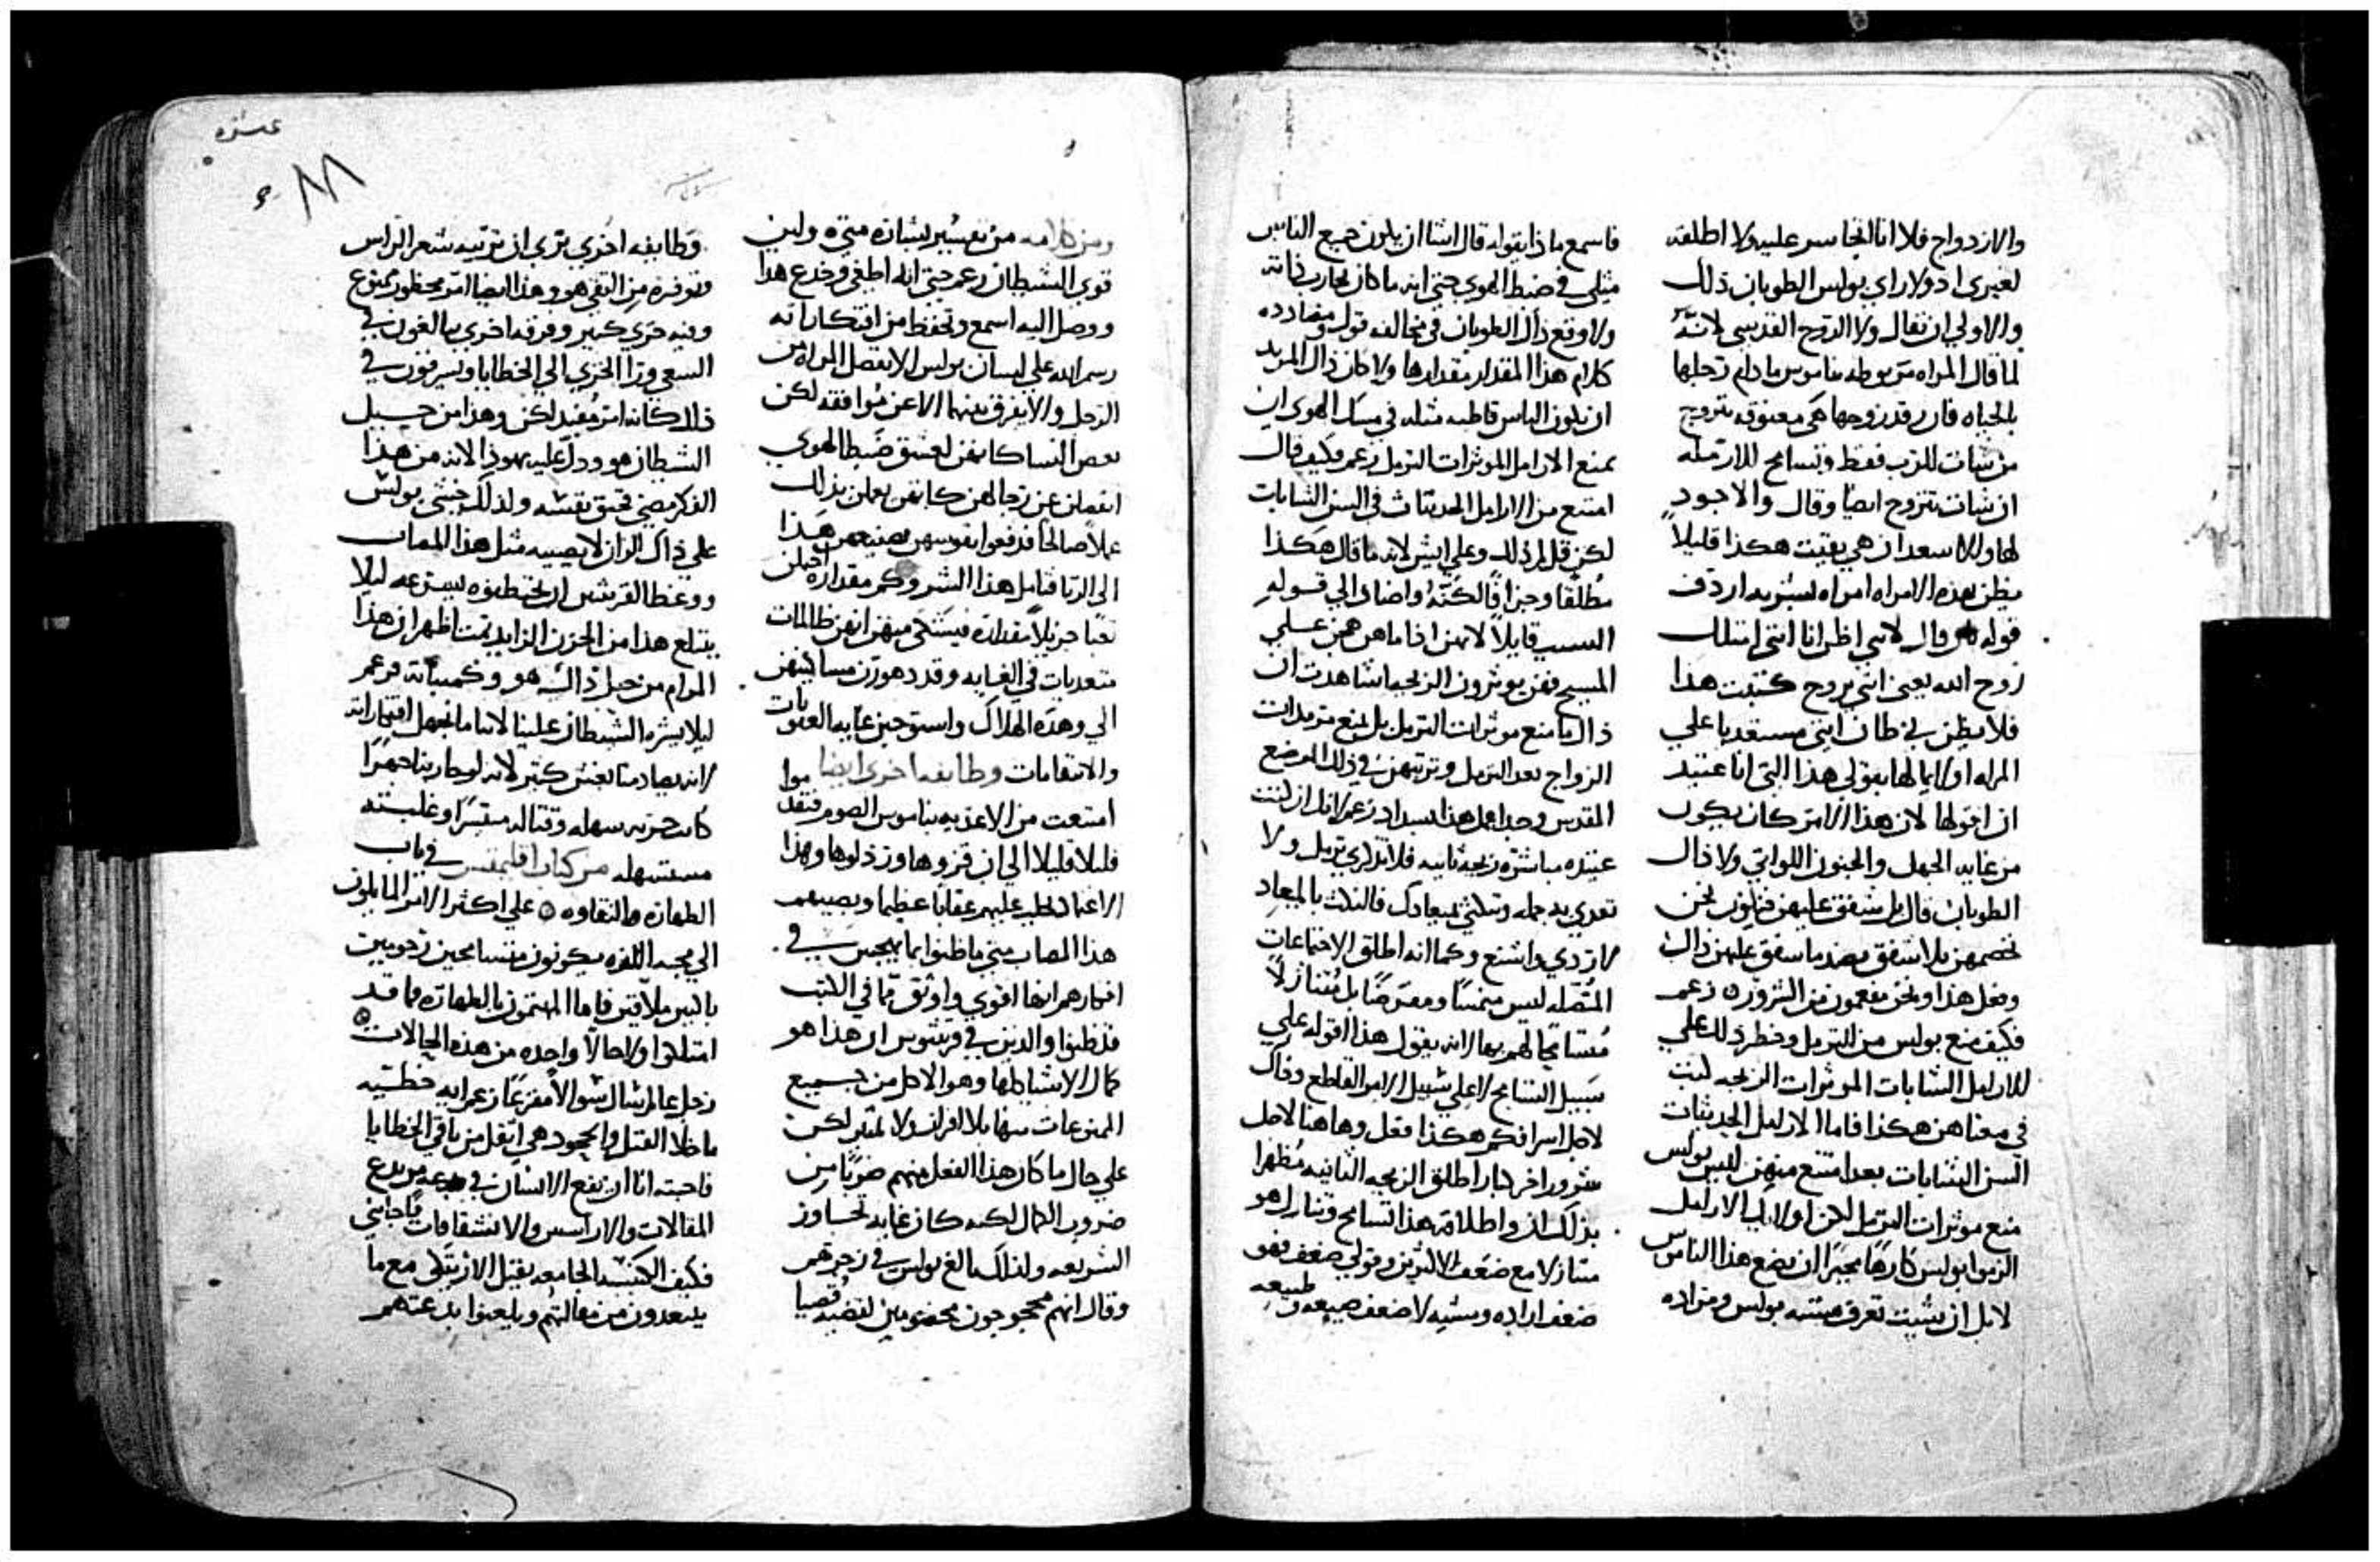 والازدواج فلا انا اتجاسر عليه ولا اطلقه
لغيري اد ولا راي بولس الطوبان ذلك
والاولي ان تقال ولا الروح القدسي لانه
لما قال المراه مربوطه بناموس ما دام رجلها
بالحياه فان رقد زوجها هي معتوقه تتزوج
من شات للرب فقط وتسامح للارمله
ان شات تتزوج ايضا وقال والاجود
لها والاسعد ان هي بقيت هكذا قليلاً
يظن بهذه الامراه امراه لبشريه اردف
قوله قال لانني اظن انا انني امتلك
روح الله يعني انني بروح كتبت هذا
فلا يظن بي ظان انني مستعديا علي
المراه اولا ايما لها بقولي هذا التي انا عتيد
ان اقولها لان هذا الامر كان يكون
من غايه الجهل والجنون اللواتي ولا ذاك
الطوبان قال بل شفق عليهن فنكون نحن
نخصمهن بلا شفق بضد ما شفق عليهن ذاك
ونفعل هذا ونحن مفعمون من الشرور زعم
فكيف منع بولس من الترمل وحظر ذلك علي
للارامل الشابات الموثرات الزيجه ليت
في معناهن هكذا فاما الارامل الحديثات
السن الشابات بعد امتنع منهن ليس بولس
منع موثرات الترمل لكن اوليك الارامل
الزموا بولس كارها مجبرا ان يضع هذا الناموس
لا بل ان شيت تعرف مشيه بولس ومراده
فاسمع ماذا يقوله قال اشا ان يكون جميع الناس
مثلي في ضبط الهوي حتي انه ما كان يحارب ذاته
ولا وقع ذاك الطوبان في مخالفه قول ومضادده
كلام هذا المقدار مقدارها ولا كان ذاك المريد
ان يكون الناس قاطبه مثله في مسك الهوي ان
يمنع الارامل الموثرات الترمل زعم فكيف قال
امتنع من الارامل الحديثات في السن الشابات
لكن قل لي ذلك وعلي ايش لانه ما قال هكذا
مطلقا وجزافا لكنه واضاف الي قوله
السبب قايلاً لانهن اذا ما هن همجن علي
المسيح فهن يوثرون الزيجه اشاهدت ان
ذاك ما منع موثرات الترمل بل منع مريدات
الزواج بعد الترمل وترتيبهن في ذلك الموضع
المقدس وحدا عمل هذا السداد زعم لانك ان كنت
عتيده مباشره زيجه ثانيه فلا تنذري ترمل ولا
تعدي به جمله وتنكثي بميعادك فالنكث بالميعاد
لاردي واشنع وكما انه اطلق الاجتماعات
المتصله ليس متمننا ومفترضا بل متنازلاً
متسامحا لهم بها لانه يقول هذا اقوله علي
سبيل التسامح لا علي سبيل الامر القاطع وذاك
لاجل اسرافكم هكذا فعل وهاهنا لاجل
شرور اخر كبار اطلق الزيجه الثانيه مظهرا
بذلك ان واطلاقه هذا تسامح وتنازل هو
متنازلا مع ضعف الاكثرين وقولي ضعف فهو
ضعف اراده ومشيه لا ضعف طبيعه
ومن كلامه من تفسير بشاره متي وليس
قوي الشيطان زعم حتي انه اطغي وخدع هذا
ووصل اليه اسمع وتحفظ من افتكاراته
رسم الله علي لسان بولس الا تفصل المراه من
الرجل والا يفرق بينهما الا عن موافقه لكن
بعض النسا كانهن لعشق ضبط الهوي
انفصلن عن رجالهن كانهن يعملن بذلك
عملا صالحا فدفعوا نفوسهن بصنيعهن هذا
الي الزنا فتامل هذا الشر وكم مقداره احتملن
تعبا جزيلا مقداره فيشتكي منهن انهن ظالمات
متعديات في الغايه وقد دهورن مساكنيهن
الي وهده الهلاك واستوجبن غايه العقوبات
والانتقامات وطايفه اخري ايضا موا
امتنعت من الاغذيه بناموس الصوم فتقد
قليلا قليلا الي ان قزوها ورذلوها وهذا
الاعتماد يجلب عليهم عقابا عظيما ويصيبهم
هذا المصاب متي ما ظنوا بما يهجس في
افكارهم انها اقوي واوثق مما في الكتب
قد ظنوا والذين في قرنثوس ان هذا هو
كمال الانبساطها وهو الاكل من جميع
الممنوعات منها بلا افراز ولا تميز لكن
علي حال ما كان هذا الفعل منهم ضربا من
ضروب الكمال لكنه كان غايه تجاوز
الشريعه ولذلك بالغ بولس في زجرهم
وقال انهم محجوجون محضوبين لقضيه قصيا
وطايفه اخري تري ان تربيه شعر الراس
وتوفره من التقي هو وهذا ايضا امر محظور ممنوع
وفيه خزي كبير وفرقه اخري يبالغون في
السعي ورا الخزي الي الخطايا ويسرفون في
ذلك كانه امر مفيد لكن وهذا من حبيل
الشيطان هو ودل عليه يهوذا لانه من هذا
الفكر مضي فخنق نفسه ولذلك خشي بولس
علي ذاك الزان لا يصيبه مثل هذا المصاب
ووعظ القرنثيين ان يختطفوه بسرعه ليلا
يبتلع هذا من الحزن الزايد تمت اظهر ان هذا
المرام من حيل ذاك هو وكميناته فزعم
ليلا يشره الشيطان علينا لاننا ما نجهل افتكاراته
لانه يصادمنا بغش كثير لانه لو حاربنا جهرا
كانت حربه سهله وقتاله متيسرا وغلبته
مستسهله من كتاب اقليمنس في باب
الطهاره والنقاوه علي اكثر الامر المايلون
الي محبه اللذه يكونون متسامحين زحوميين
بالبير ملاقين فاما المهتمون بالطهاره فما قد
امتلكوا ولا حالا واحده من هذه الحالات
رجل عالم سال سوالا مفزعا زعم ايه خطيه
ما خلا القتل والجحود هي اثقل من باقي الخطايا
فاجبته انا ان يقع الانسان في بدعه من بدع
المقالات والاراسس والانشقاقات فاجابني
فكيف الكنيسه الجامعه تقبل الاراتقي مع ما
يبتعدون من مقالتهم ويلعنوا بدعتهم
عشره